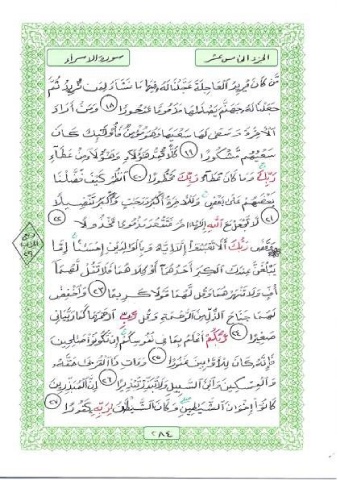 الجزء الخامس عشر
سورة الاسراء
مَّن كَانَ يُرِيدُ الْعَاجِلَةَ عَجَّلْنَا لَهُ فِيهَا مَا نَشَاءُ لِمَن نُّرِيدُ ثُمَّ
جَعَلْنَا لَهُ جَهَنَّمَ يَصْلَىٰهَا مَذْمُومًا مَّدْحُورًا ١٨ وَمَنْ أَرَادَ
الْآخِرَةَ وَسَعَىٰ لَهَا سَعْيَهَا وَهُوَ مُؤْمِنٌ فَأُولَٰئِكَ كَانَ
سَعْيُهُم مَّشْكُورًا ١٩ كُلًّا نُّمِدُّ هَٰؤُلَاءِ وَهَٰؤُلَاءِ مِنْ عَطَاءِ
رَبِّكَ وَمَا كَانَ عَطَاءُ رَبِّكَ مَحْظُورًا ٢٠ انظُرْ كَيْفَ فَضَّلْنَا
بَعْضَهُمْ عَلَىٰ بَعْضٍ وَلَلْآخِرَةُ أَكْبَرُ دَرَجَٰتٍ وَأَكْبَرُ تَفْضِيلًا
٢١ لَّا تَجْعَلْ مَعَ اللَّهِ إِلَٰهًا آخَرَ فَتَقْعُدَ مَذْمُومًا مَّخْذُولًا ٢٢
وَقَضَىٰ رَبُّكَ أَلَّا تَعْبُدُوا إِلَّا إِيَّاهُ وَبِالْوَٰلِدَيْنِ إِحْسَٰنًا إِمَّا
يَبْلُغَنَّ عِندَكَ الْكِبَرَ أَحَدُهُمَا أَوْ كِلَاهُمَا فَلَا تَقُل لَّهُمَا
أُفٍّ وَلَا تَنْهَرْهُمَا وَقُل لَّهُمَا قَوْلًا كَرِيمًا ٢٣ وَاخْفِضْ
لَهُمَا جَنَاحَ الذُّلِّ مِنَ الرَّحْمَةِ وَقُل رَّبِّ ارْحَمْهُمَا كَمَا رَبَّيَانِي
صَغِيرًا ٢٤ رَّبُّكُمْ أَعْلَمُ بِمَا فِي نُفُوسِكُمْ إِن تَكُونُوا صَٰلِحِينَ
فَإِنَّهُ كَانَ لِلْأَوَّٰبِينَ غَفُورًا ٢٥ وَآتِ ذَا الْقُرْبَىٰ حَقَّهُ
وَالْمِسْكِينَ وَابْنَ السَّبِيلِ وَلَا تُبَذِّرْ تَبْذِيرًا ٢٦ إِنَّ الْمُبَذِّرِينَ
كَانُوا إِخْوَٰنَ الشَّيَٰطِينِ وَكَانَ الشَّيْطَٰنُ لِرَبِّهِ كَفُورًا ٢٧
٢٨٤